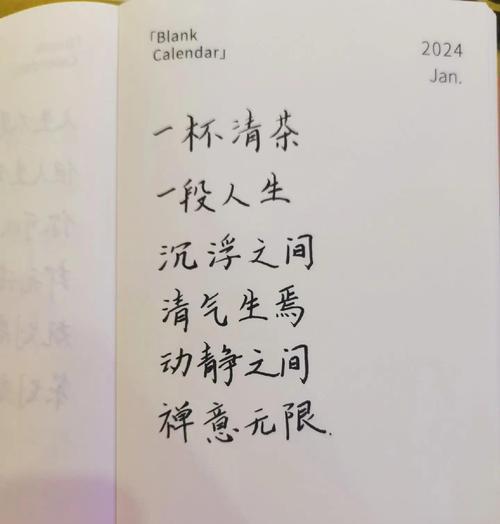 「Blank
Calendar」
2024
Jan.
一杯清茶
一段人生
沉浮之间
清气生焉
动静之间
禅意无限.